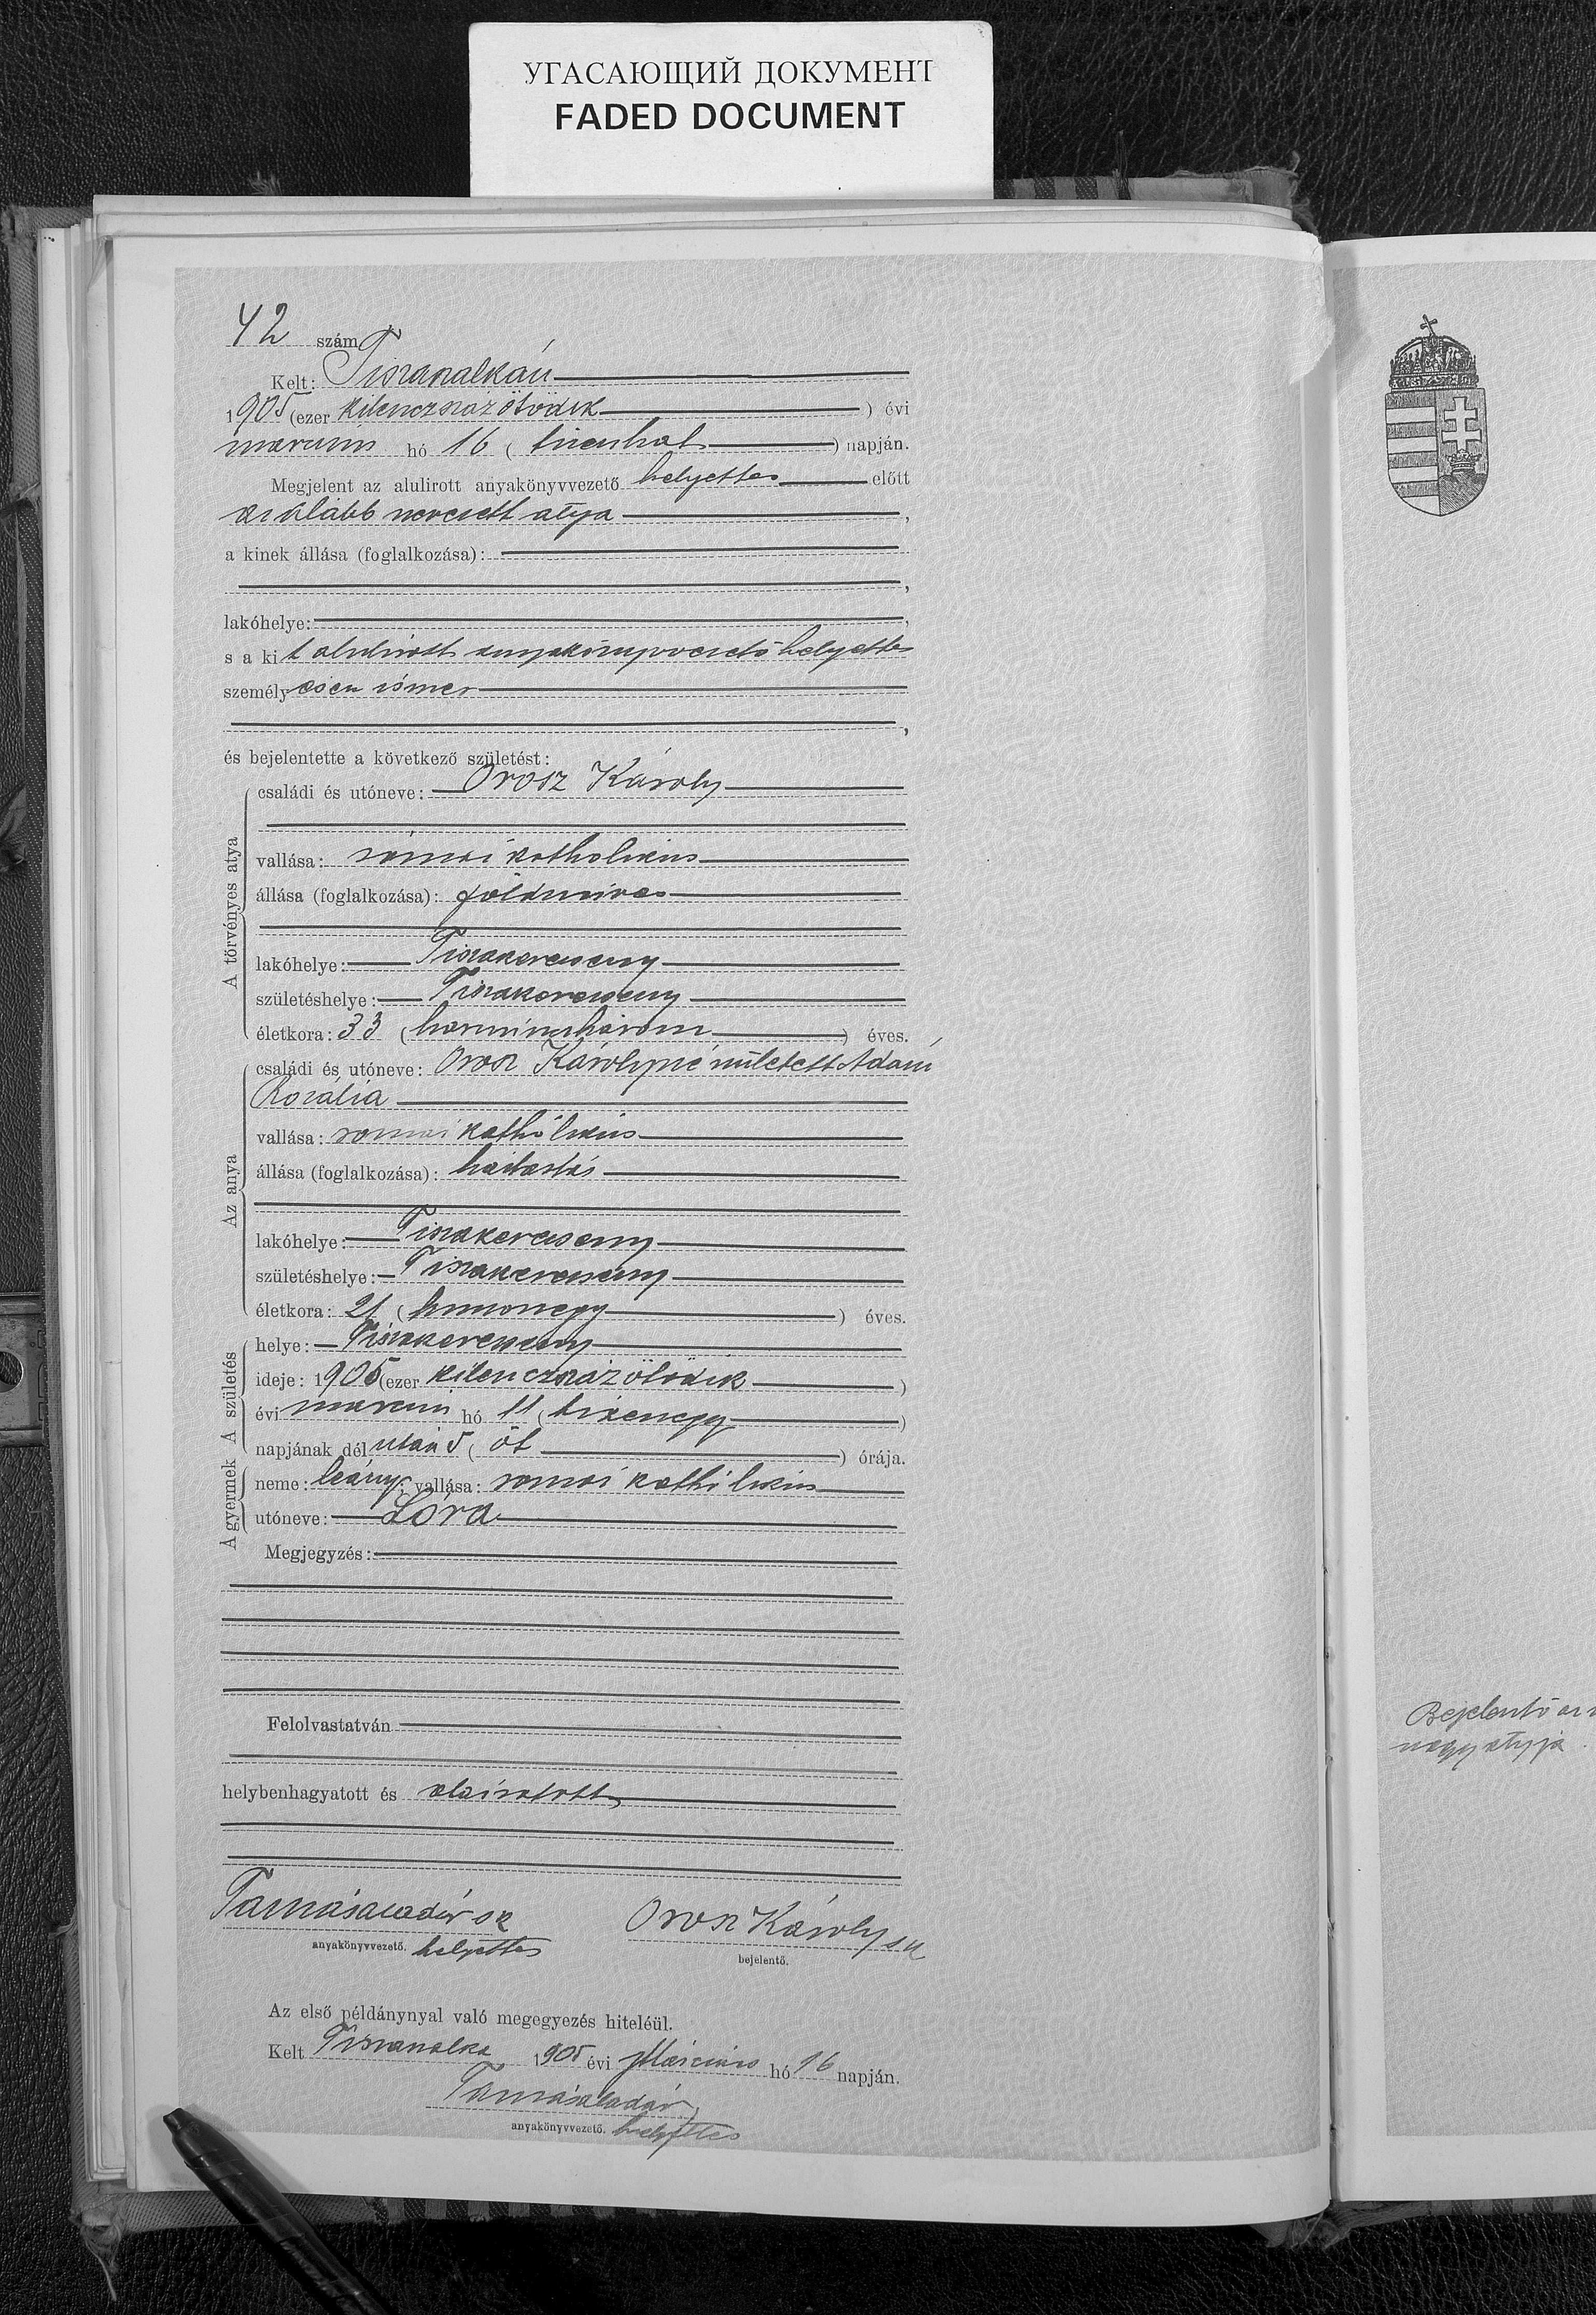 УГАСАЮЩИЙ ДОКУМЕНТ
FADED DOCUMENT
42 szám
Kelt: Tiszaszalkán
1905 (ezer kilenczszáz ötödik ) évi
marczius hó 16 ( tizenhat ) napján.
Megjelent az alulirott anyakönyvvezető helyettes előtt
az alább nevezett atya ,
a kinek állása (foglalkozása):
,
lakóhelye: ,
s a kit alulirott anyakönyvvezető helyettes
személyesen ismer
,
és bejelentette a következő születést:
A törvényes atya
családi és utóneve: Orosz Károly
vallása: római katholikus
állása (foglalkozása): földmives
lakóhelye: Tiszakerecseny
születéshelye: Tiszakerecseny
életkora: 33 ( harminczhárom ) éves.
Az anya
családi és utóneve: Orosz Károlyné született Adami
Rozália
vallása: romai katholikus
állása (foglalkozása): háztartás
lakóhelye: Tiszakerecseny
születéshelye: Tiszakerecseny
életkora: 21 ( huszonegy ) éves.
A születés
helye: Tiszakerecseny
ideje: 1905 (ezer kilenczszáz ötödik )
évi marczius hó 11 ( tizenegy )
napjának délután 5 ( öt ) órája.
A gyermek
neme: leány; vallása: romai katholikus
utóneve: Lóra
Megjegyzés:
Felolvastatván
helybenhagyatott és aláiratott
Tamás Aladár sk Orosz Károly sk
anyakönyvvezető. helyettes bejelentő.
Az első példánynyal való megegyezés hiteléül.
Kelt Tiszaszalka 1905 évi Március hó 16 napján.
Tamás Aladár
anyakönyvvezető. helyettes
Bejelentő
nagyatyja